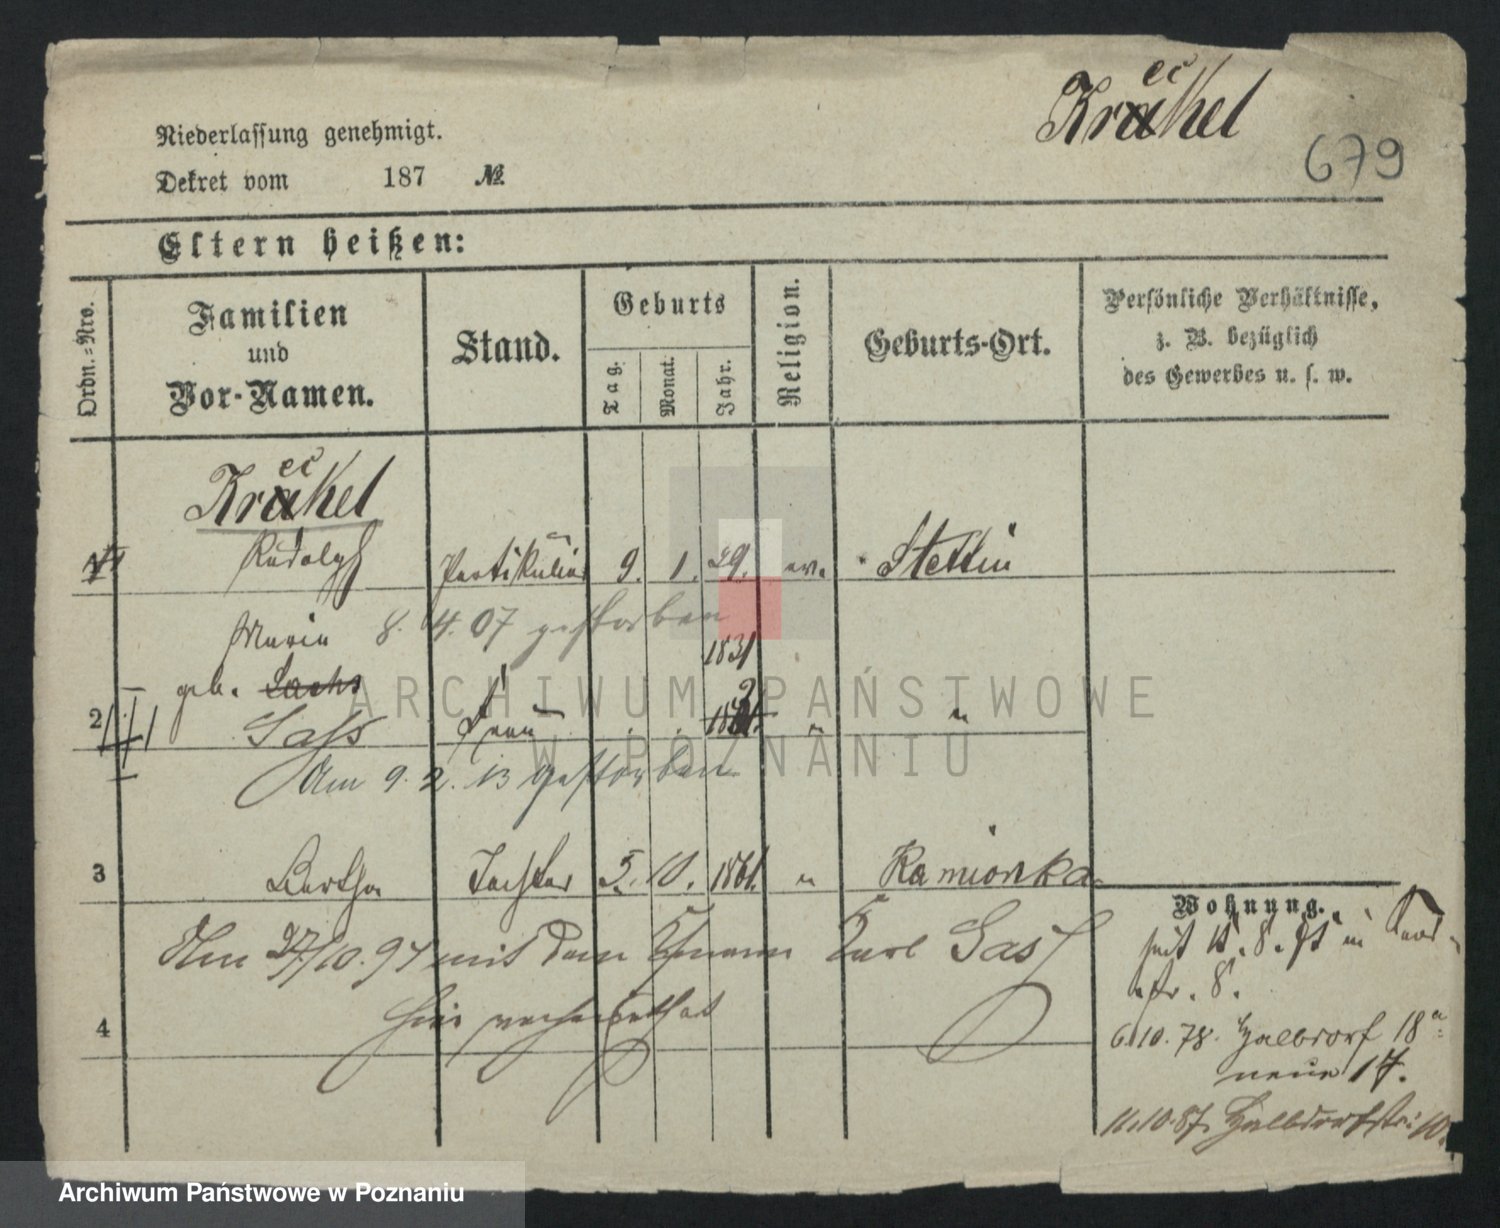 Kräkel
ec
679
Niederlassung genehmigt.
Dekret vom 187 №
Eltern heißen:
Ordn.=Nro.
Familien und Vor-Namen.
Stand.
Geburts
Tag.
Monat.
Jahr.
Religion.
Geburts-Ort.
Persönliche Verhältnisse,
z. B. bezüglich
des Gewerbes u. s. w.
ec
Kräkel
Rudolph Partikulier 9. 1. 29. ev. Stettin
Maria 8. 4. 07 gestorben
1831
geb. Sachs
2 Sass Frau " "
Am 9. 2. 13 gestorben
3 Bertha Tochter 5. 10. 1861. " Kamionka
Am 27/10.94 mit dem Karl Sass
hier verheirathet
4
Wohnung.
seit 8.
str. 8.
6.10.78. Halbdorf 18a
neue 17.
11.10.87. Halbdorfstr: 10.
ARCHIWUM PAŃSTWOWE
W POZNANIU
Archiwum Państwowe w Poznaniu